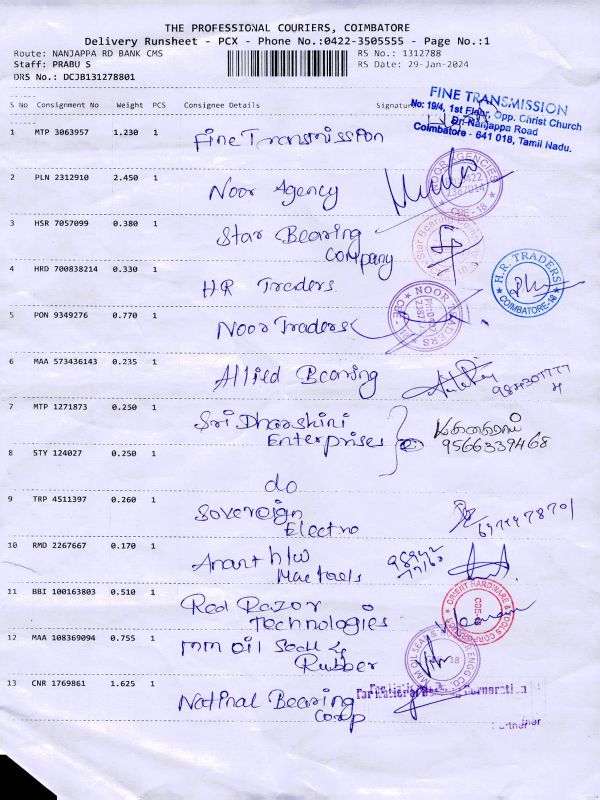 THE PROFESSIONAL COURIERS, COIMBATORE
Delivery Runsheet - PCX - Phone No.:0422-3505555 - Page No.:1
Route: NANJAPPA RD BANK CMS
RS No.: 1312788
Staff: PRABU S
RS Date: 29-Jan-2024
DRS No.: DCJB131278801
S No Consignment No Weight PCS Consignee Details Signature
FINE TRANSMISSION
No: 19/4, 1st Floor, Opp. Christ Church
Dr. Nanjappa Road
Coimbatore - 641 018, Tamil Nadu.
1 MTP 3063957 1.230 1 Fine Transmission
2 PLN 2312910 2.450 1 Noor Agency
NOOR AGENCIES
CBE-18
3 HSR 7057099 0.380 1 Star Bearing
Company
4 HRD 700838214 0.330 1 HR Traders
H.R. TRADERS
COIMBATORE-18
5 PON 9349276 0.770 1 Noor Traders
NOOR TRADERS
6 MAA 573436143 0.235 1 Allied Bearing
7 MTP 1271873 0.250 1 Sri Dharshini
Enterprises
9566339468
8 STY 124027 0.250 1
do
9 TRP 4511397 0.260 1 Sovereign
Electro
10 RMD 2267667 0.170 1 Ananth h/w
11 BBI 100163803 0.510 1 Red Razor
Technologies
ORIENT HARDWARE & TOOLS CORPORATION
12 MAA 108369094 0.755 1 MM oil Seal &
Rubber
13 CNR 1769861 1.625 1 National Bearing
Corp
For National Bearing Corporation
Partner